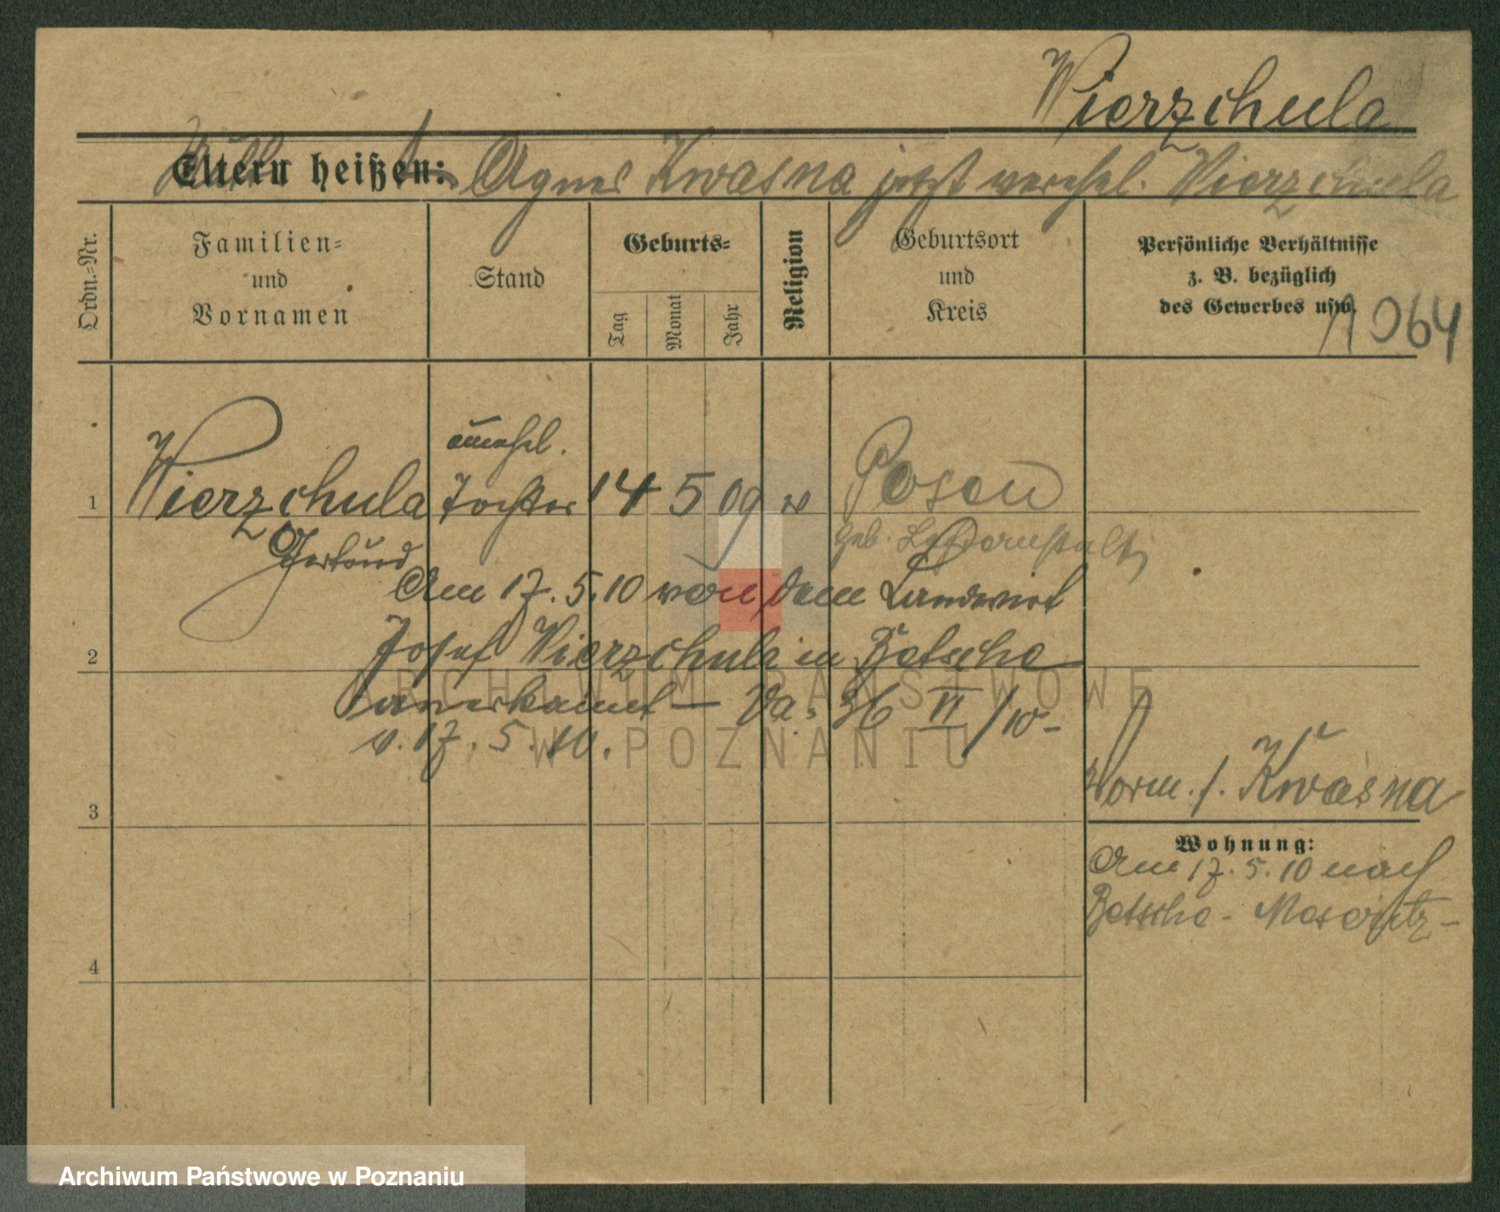 Wierzchula
Eltern heißen: Agnes Kwasna jetzt verehel. Wierzchula
Ordn.-Nr.
Familien-
und
Vornamen
Stand
Geburts-
Tag
Monat
Jahr
Religion
Geburtsort
und
Kreis
Persönliche Verhältnisse
z. B. bezüglich
des Gewerbes usw.
1064
1 Wierzchula Tochter 14 5 09 Posen
Gertrud
Am 17. 5. 10 von dem Landwirt
2
Josef Wierzchula in Betsche
anerkannt — Va. 36 VI/10 -
v. 17. 5. 10.
3
Vorm. f. Kwasna
Wohnung:
Am 17. 5. 10 nach
Betsche - Meseritz -
4
ARCHIWUM PAŃSTWOWE
W POZNANIU
Archiwum Państwowe w Poznaniu